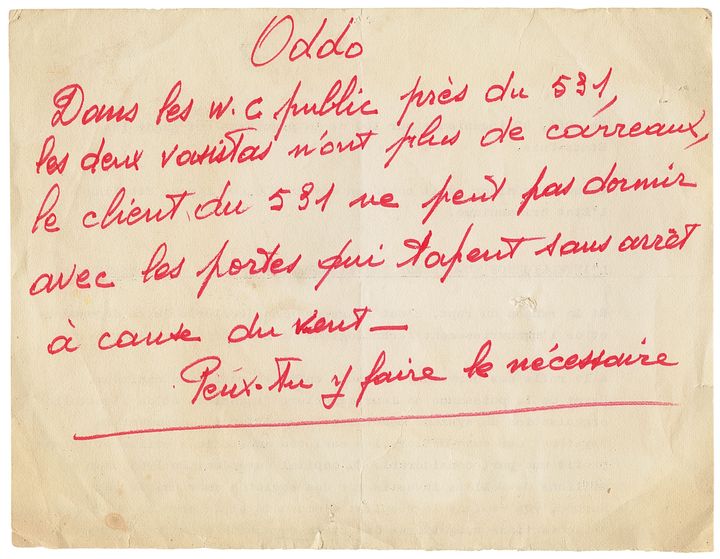 Oddo
Dans les w.c public près du 531,
les deux vasistas n'ont plus de carreaux,
le client du 531 ne peut pas dormir
avec les portes qui tapent sans arrêt
à cause du vent_
Peux-tu y faire le nécessaire